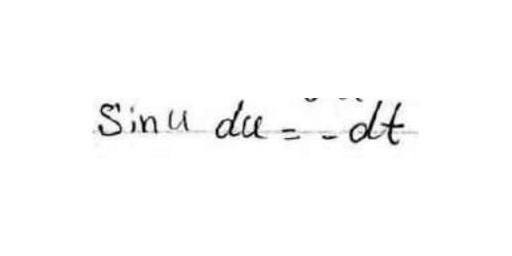 Sinu du = - dt